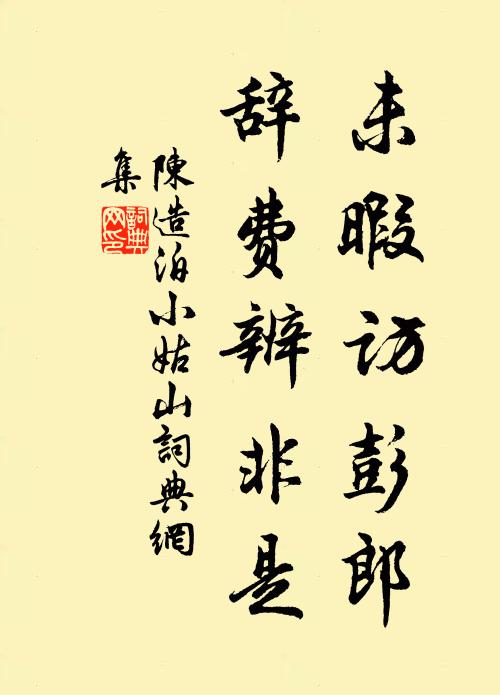 未暇访彭郎
辞费辨非是
陳造泊小姑山詞典網
集
詞典
网印